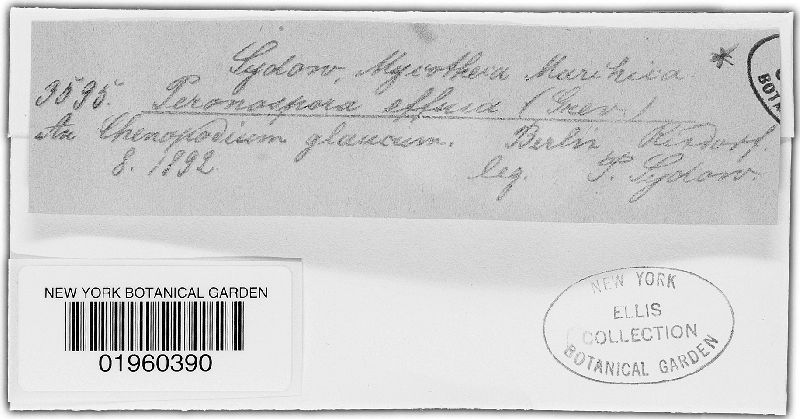 Sydow, Mycotheca Marchica. *
3595. Peronospora effusa (Grev.)
An Chenopodium glaucum. Berlin Rixdorf.
8. 1892 leg. P. Sydow.
BOTA
NEW YORK BOTANICAL GARDEN
01960390
NEW YORK
ELLIS
COLLECTION
BOTANICAL GARDEN